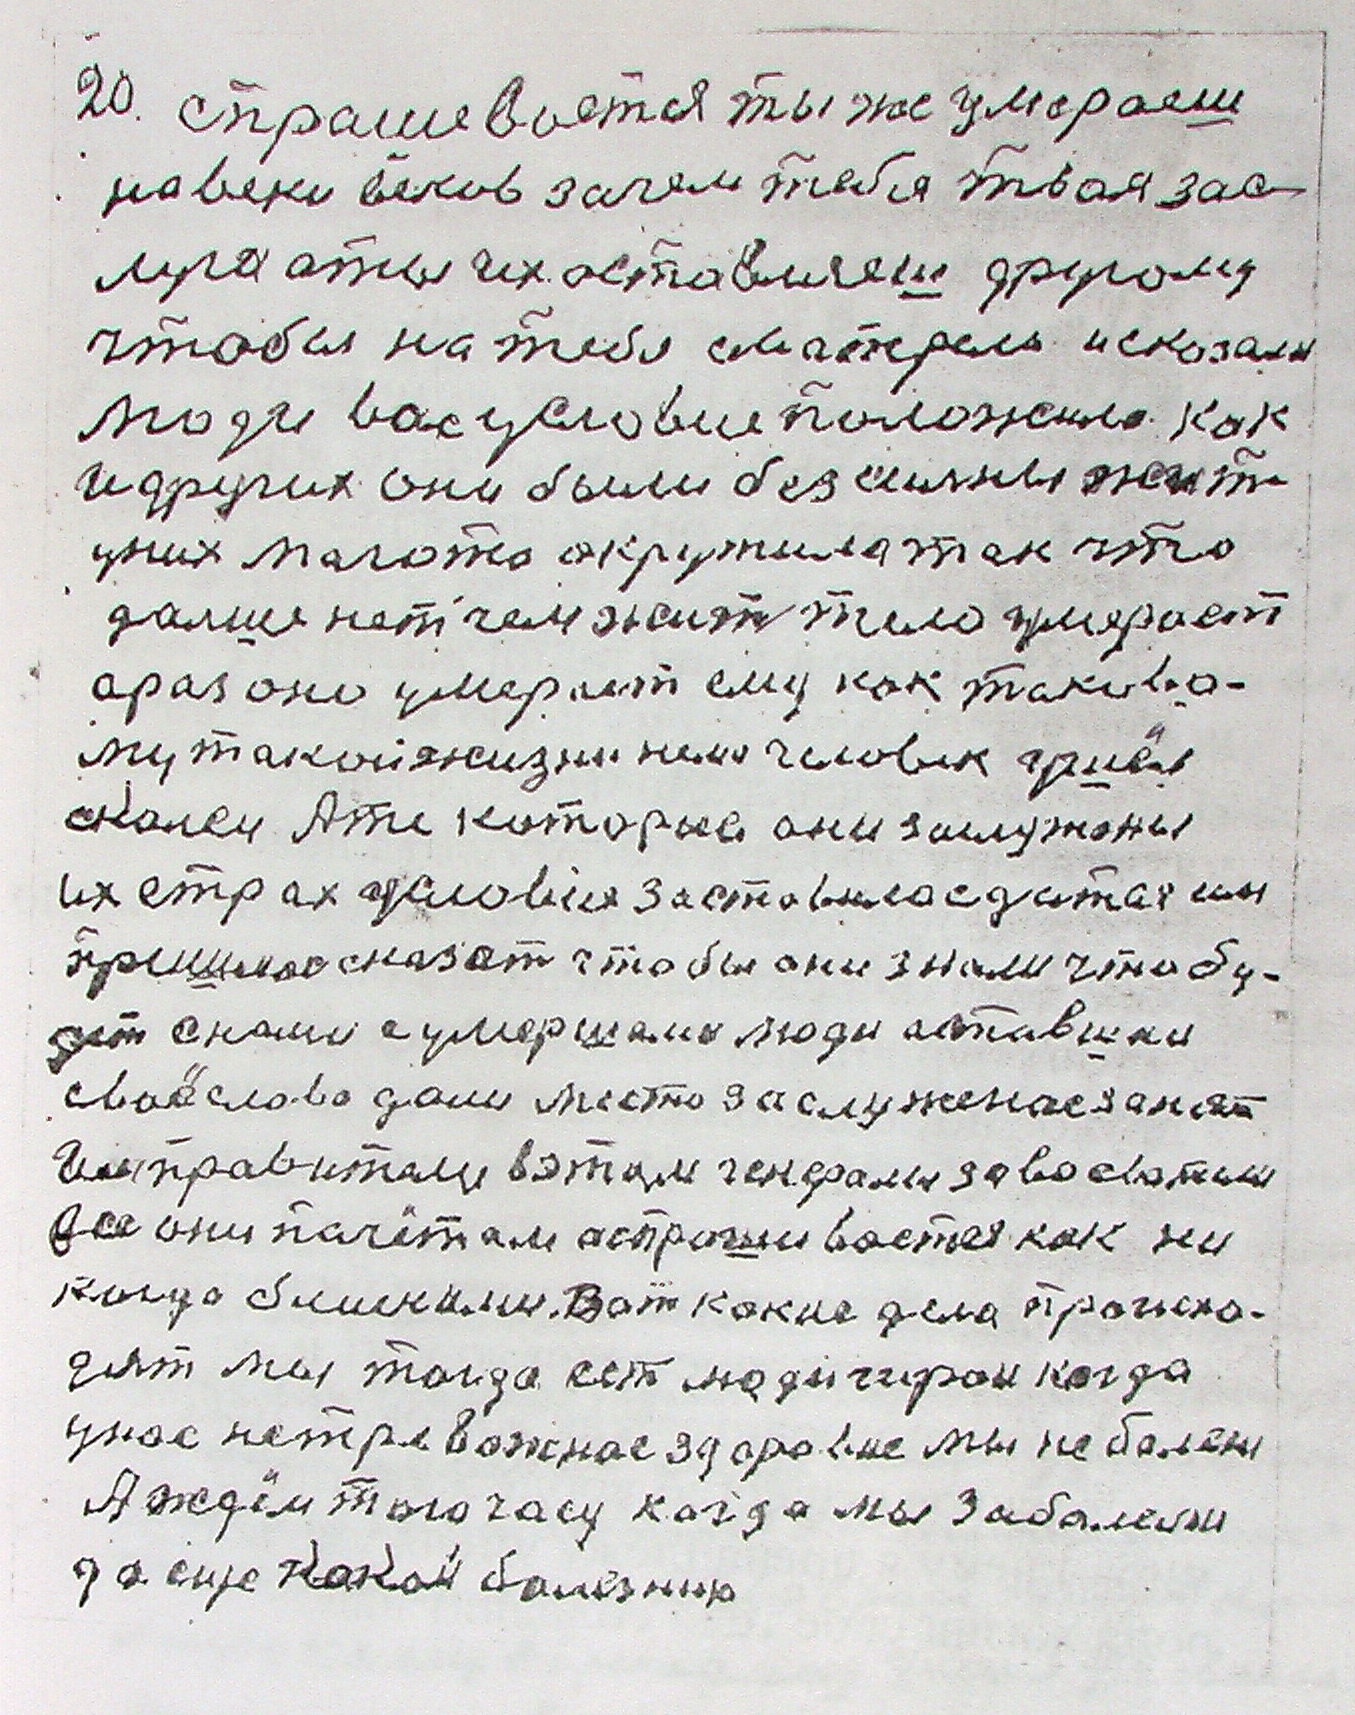 20. спрашевается ты же умераеш
навеки веков зачем тебя твая зас-
луга аты их оставляеш другому
чтобы на тебя сматрели исказали
люди вас условие положило как
идругих они были без жит
уних пагота окружила так что
далше нет чем жит тело умерает
араз оно умерает ему как таково-
му такой жизни нема человек ушёл
Ате которые они заслужоны
их страх условия заставила едитая им
пришлос сказат чтобы они знали что бу-
дет снами сумершами люди оставшии
своё слово дали место заслуженое занят
Им правителу вэтом генералы завоеватели
все они пачётам аспрашиваетея как ни
когда Вот какие дела проысхо-
дят мы тогда ест люди гирои когда
унас нетревожное здоровие мы не балеем
А ждём того часу когда мы забалеим
да еще какой болезнию